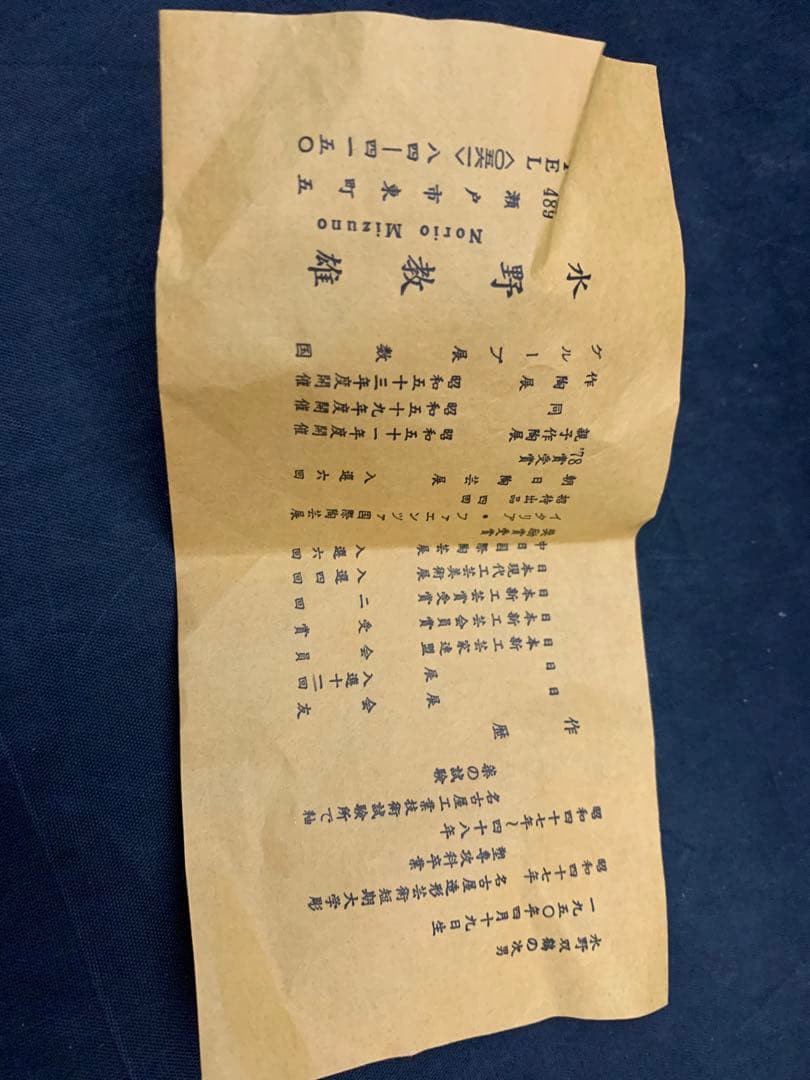 水野双鶴の次男
一九五〇年四月十九日生
昭和四十七年
名古屋造形芸術短期大学彫
塑専攻科卒業
昭和四十七年〜四十八年
名古屋工業技術試験所で釉
薬の試験
作歴
日展 会友
日展 入選十二回
日本新工芸家連盟 会員
日本新工芸会員賞 受賞
日本新工芸賞受賞 二回
日本現代工芸美術展 入選四回
中日国際陶芸展 入選六回
奨励賞受賞
イタリア・ファエンツァ国際陶芸展
招待出品四回
朝日陶芸展 入選六回
'78賞受賞
親子作陶展 昭和五十一年度開催
同 昭和五十九年度開催
作陶展 昭和五十三年度開催
グループ展 数回
水野教雄
Norio Mizuno
489 瀬戸市東町五
EL〈〇五六一〉八四―四一五〇